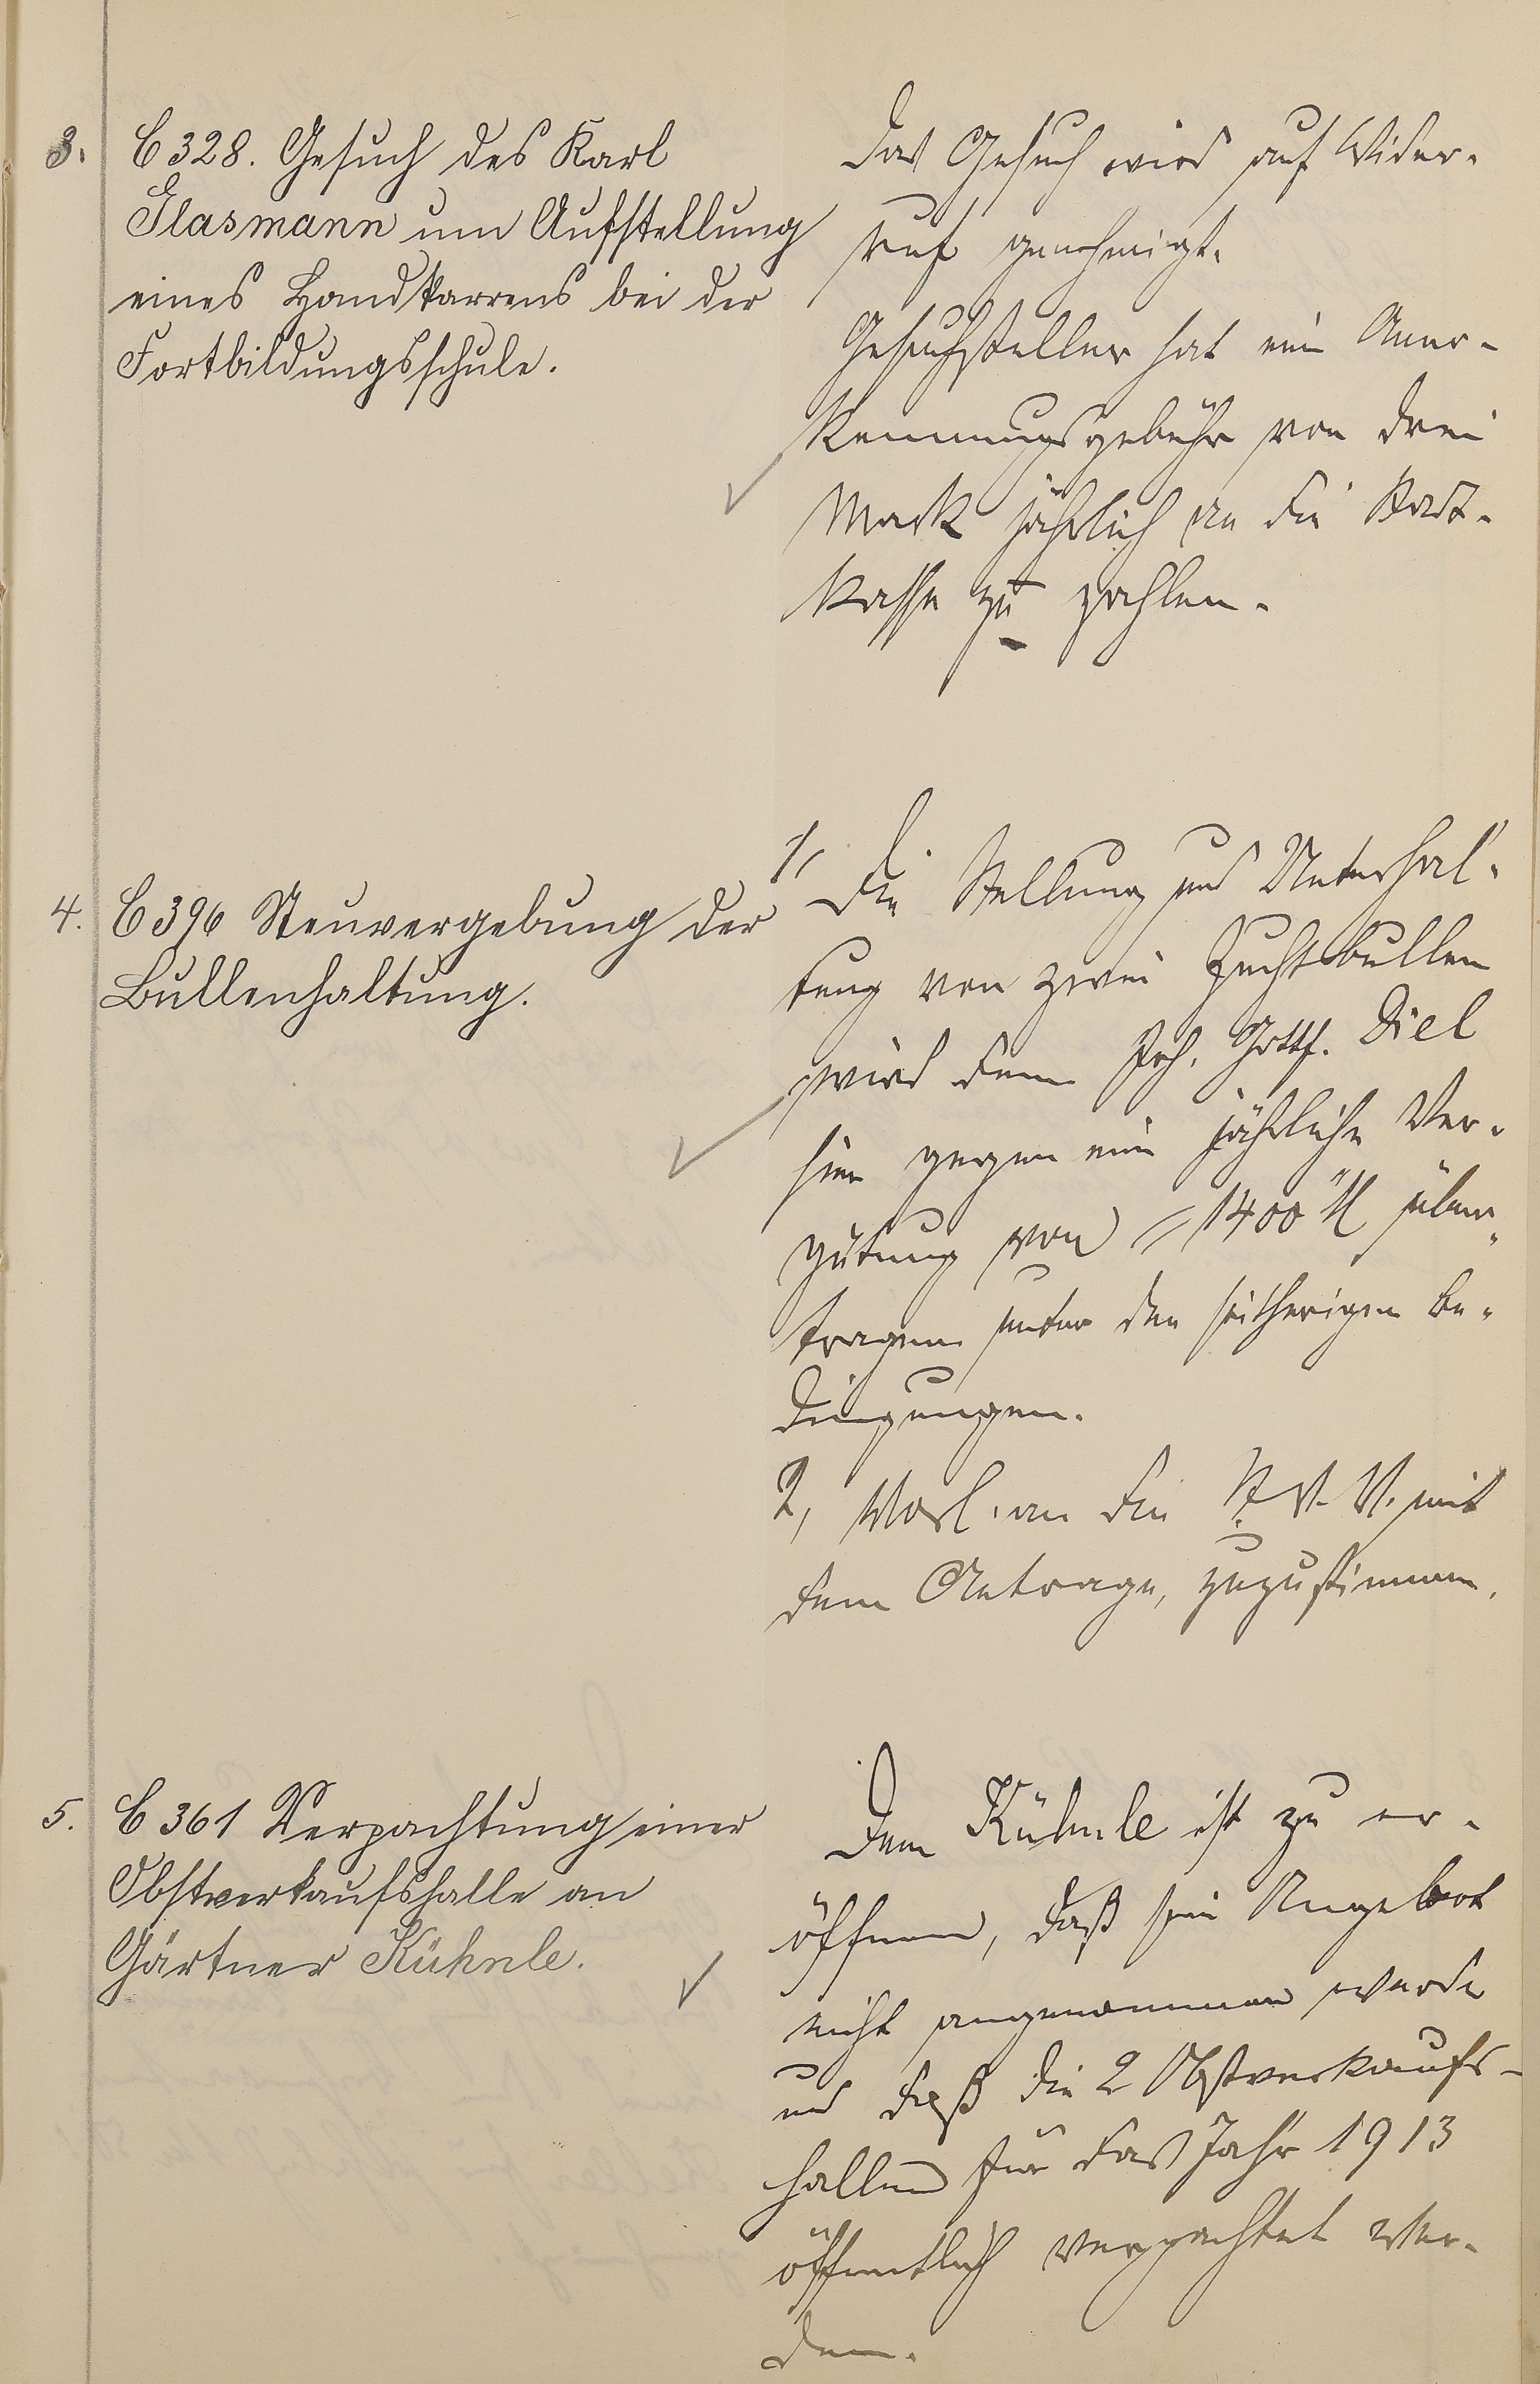 3. C 328. Gesuch des Karl
Glasmann um Aufstellung
eines Handkarrens bei der
Fortbildungsschule.
Das Gesuch wird auf Wider-
ruf genehmigt.
Gesuchsteller hat eine Aner-
kennungsgebühr von drei
Mark jährlich an die Stadt-
kasse zu zahlen.
4. C 396 Neuvergebung der
Bullenhaltung.
1, Die Stellung und Unterhal-
tung von zwei Zuchtbullen
wird dem Joh. Gottf. Diel
hier gegen eine jährliche Ver-
gütung von 1400 M über-
tragen unter den seitherigen Be-
dingungen.
2, Vorl. an die St. V. V. mit
dem Antrage, zuzustimmen.
5. C 361 Verpachtung einer
Obstverkaufshalle an
Gärtner Kühnle.
Dem Kühnle ist zu er-
öffnen, daß sein Angebot
nicht angenommen werde
und daß die 2 Obstverkaufs-
hallen für das Jahr 1913
öffentlich verpachtet wer-
den.